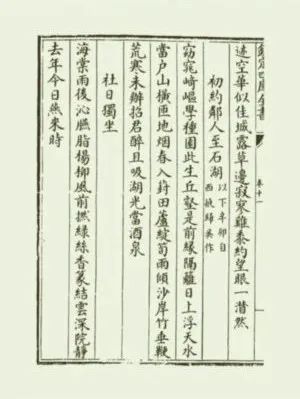 欽定四庫全書
卷十一
空華似佳城露草邊寂寥雞黍約望眼一潸然
初約鄰人至石湖 以下辛卯自
西掖歸吳作
窈窕崎嶇學種園此生丘壑是前緣隔籬日上浮天水
當戶山橫匝地烟春入葑田蘆綻筍雨傾沙岸竹垂鞭
荒寒未辦招君醉且吸湖光當酒泉
社日獨坐
海棠雨後沁臙脂楊柳風前撚綠絲香篆結雲深院靜
去年今日燕來時